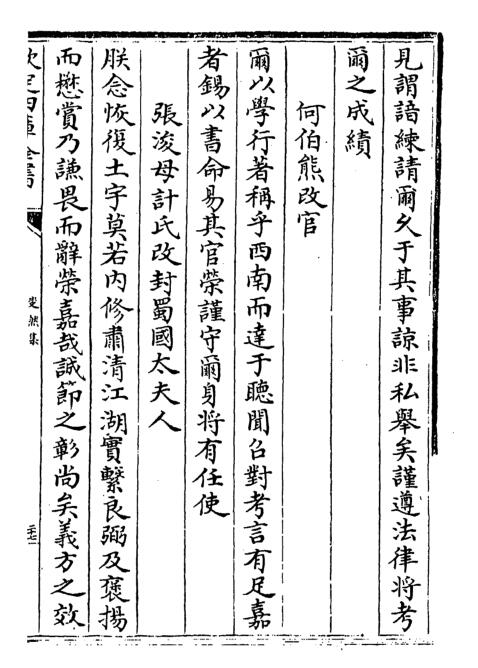 見謂諳練請爾久于其事諒非私舉矣謹遵法律將考
爾之成績
何伯熊改官
爾以學行著稱乎西南而達于聽聞召對考言有足嘉
者錫以書命易其官榮謹守爾身將有任使
張浚母計氏改封蜀國太夫人
朕念恢復土宇莫若内修肅清江湖實繫良弼及褒揚
而懋賞乃謙畏而辭榮嘉哉誠節之彰尚矣義方之效
欽定四庫全書
斐然集